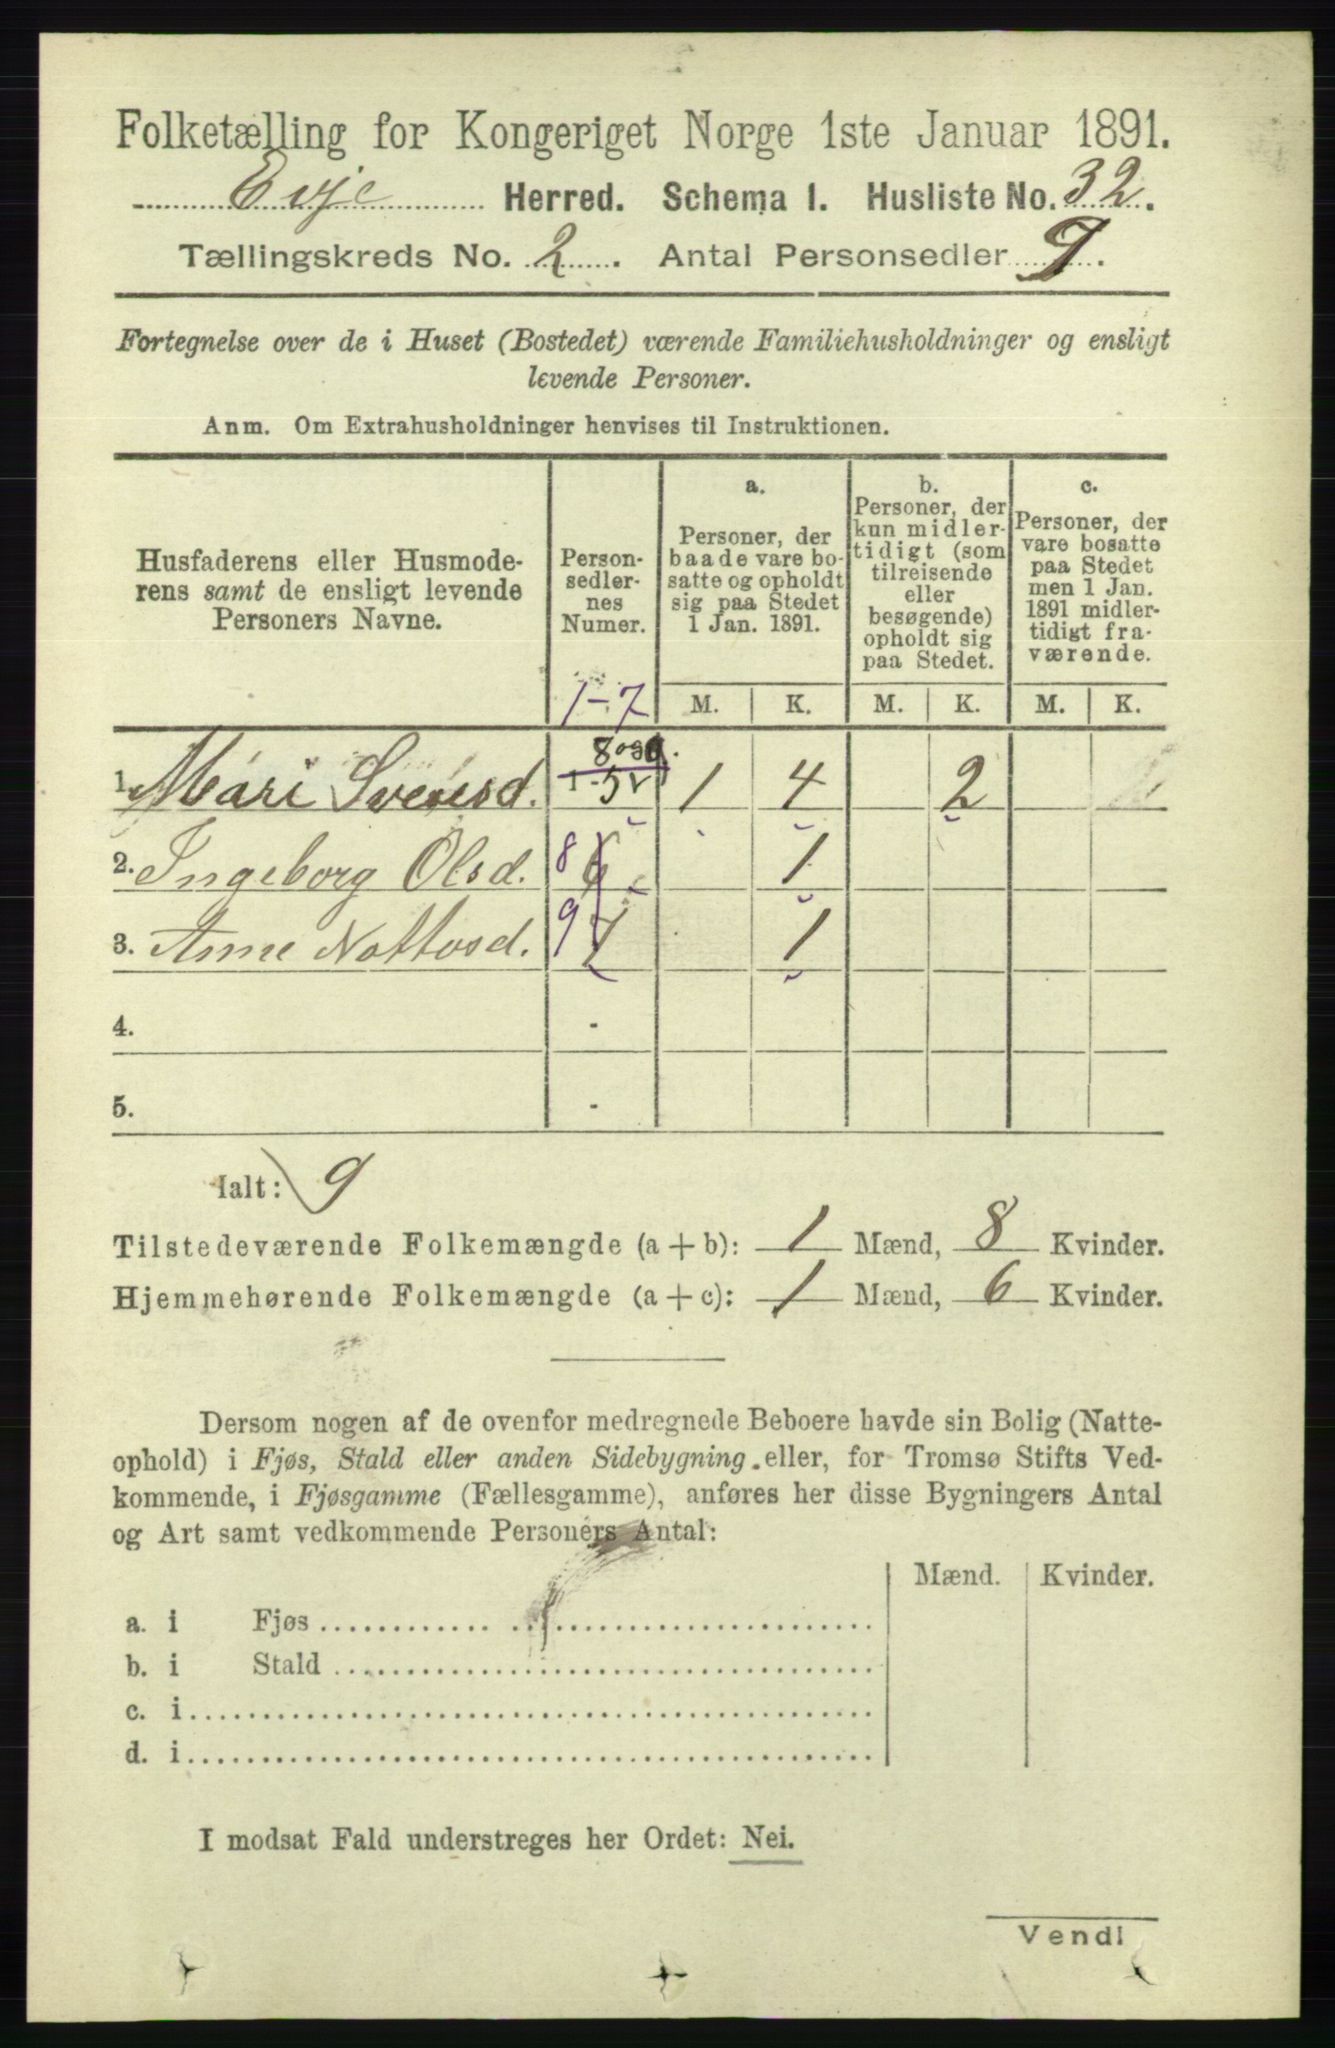 Folketælling for Kongeriget Norge 1ste Januar 1891.
Evje Herred. Schema I. Husliste No. 32.
Tællingskreds No. 2. Antal Personsedler 9.
Fortegnelse over de i Huset (Bostedet) værende Familiehusholdninger og ensligt
levende Personer.
Anm. Om Extrahusholdninger henvises til Instruktionen.
Husfaderens eller Husmode-
rens samt de ensligt levende
Personers Navne.
Person-
sedler-
nes
Numer.
1-7
a.
Personer, der
baade vare bo-
satte og opholdt
sig paa Stedet
1 Jan. 1891.
b.
Personer, der
kun midler-
tidigt (som
tilreisende
eller
besøgende)
opholdt sig
paa Stedet.
c.
Personer, der
vare bosatte
paa Stedet
men 1 Jan.
1891 midler-
tidigt fra-
værende.
M. K. M. K. M. K.
8 og 9.
1. Mari Svensd. 1-5 1 4 2
2. Ingeborg Olsd. 8 6 1
3. Anne Nottosd. 9 7 1
4. -
5. -
Ialt: 9
Tilstedeværende Folkemængde (a + b): 1 Mænd, 8 Kvinder.
Hjemmehørende Folkemængde (a + c): 1 Mænd, 6 Kvinder.
Dersom nogen af de ovenfor medregnede Beboere havde sin Bolig (Natte-
ophold) i Fjøs, Stald eller anden Sidebygning, eller, for Tromsø Stifts Ved-
kommende, i Fjøsgamme (Fællesgamme), anføres her disse Bygningers Antal
og Art samt vedkommende Personers Antal:
Mænd. Kvinder.
a. i Fjøs
b. i Stald
c. i
d. i
I modsat Fald understreges her Ordet: Nei.
Vend!